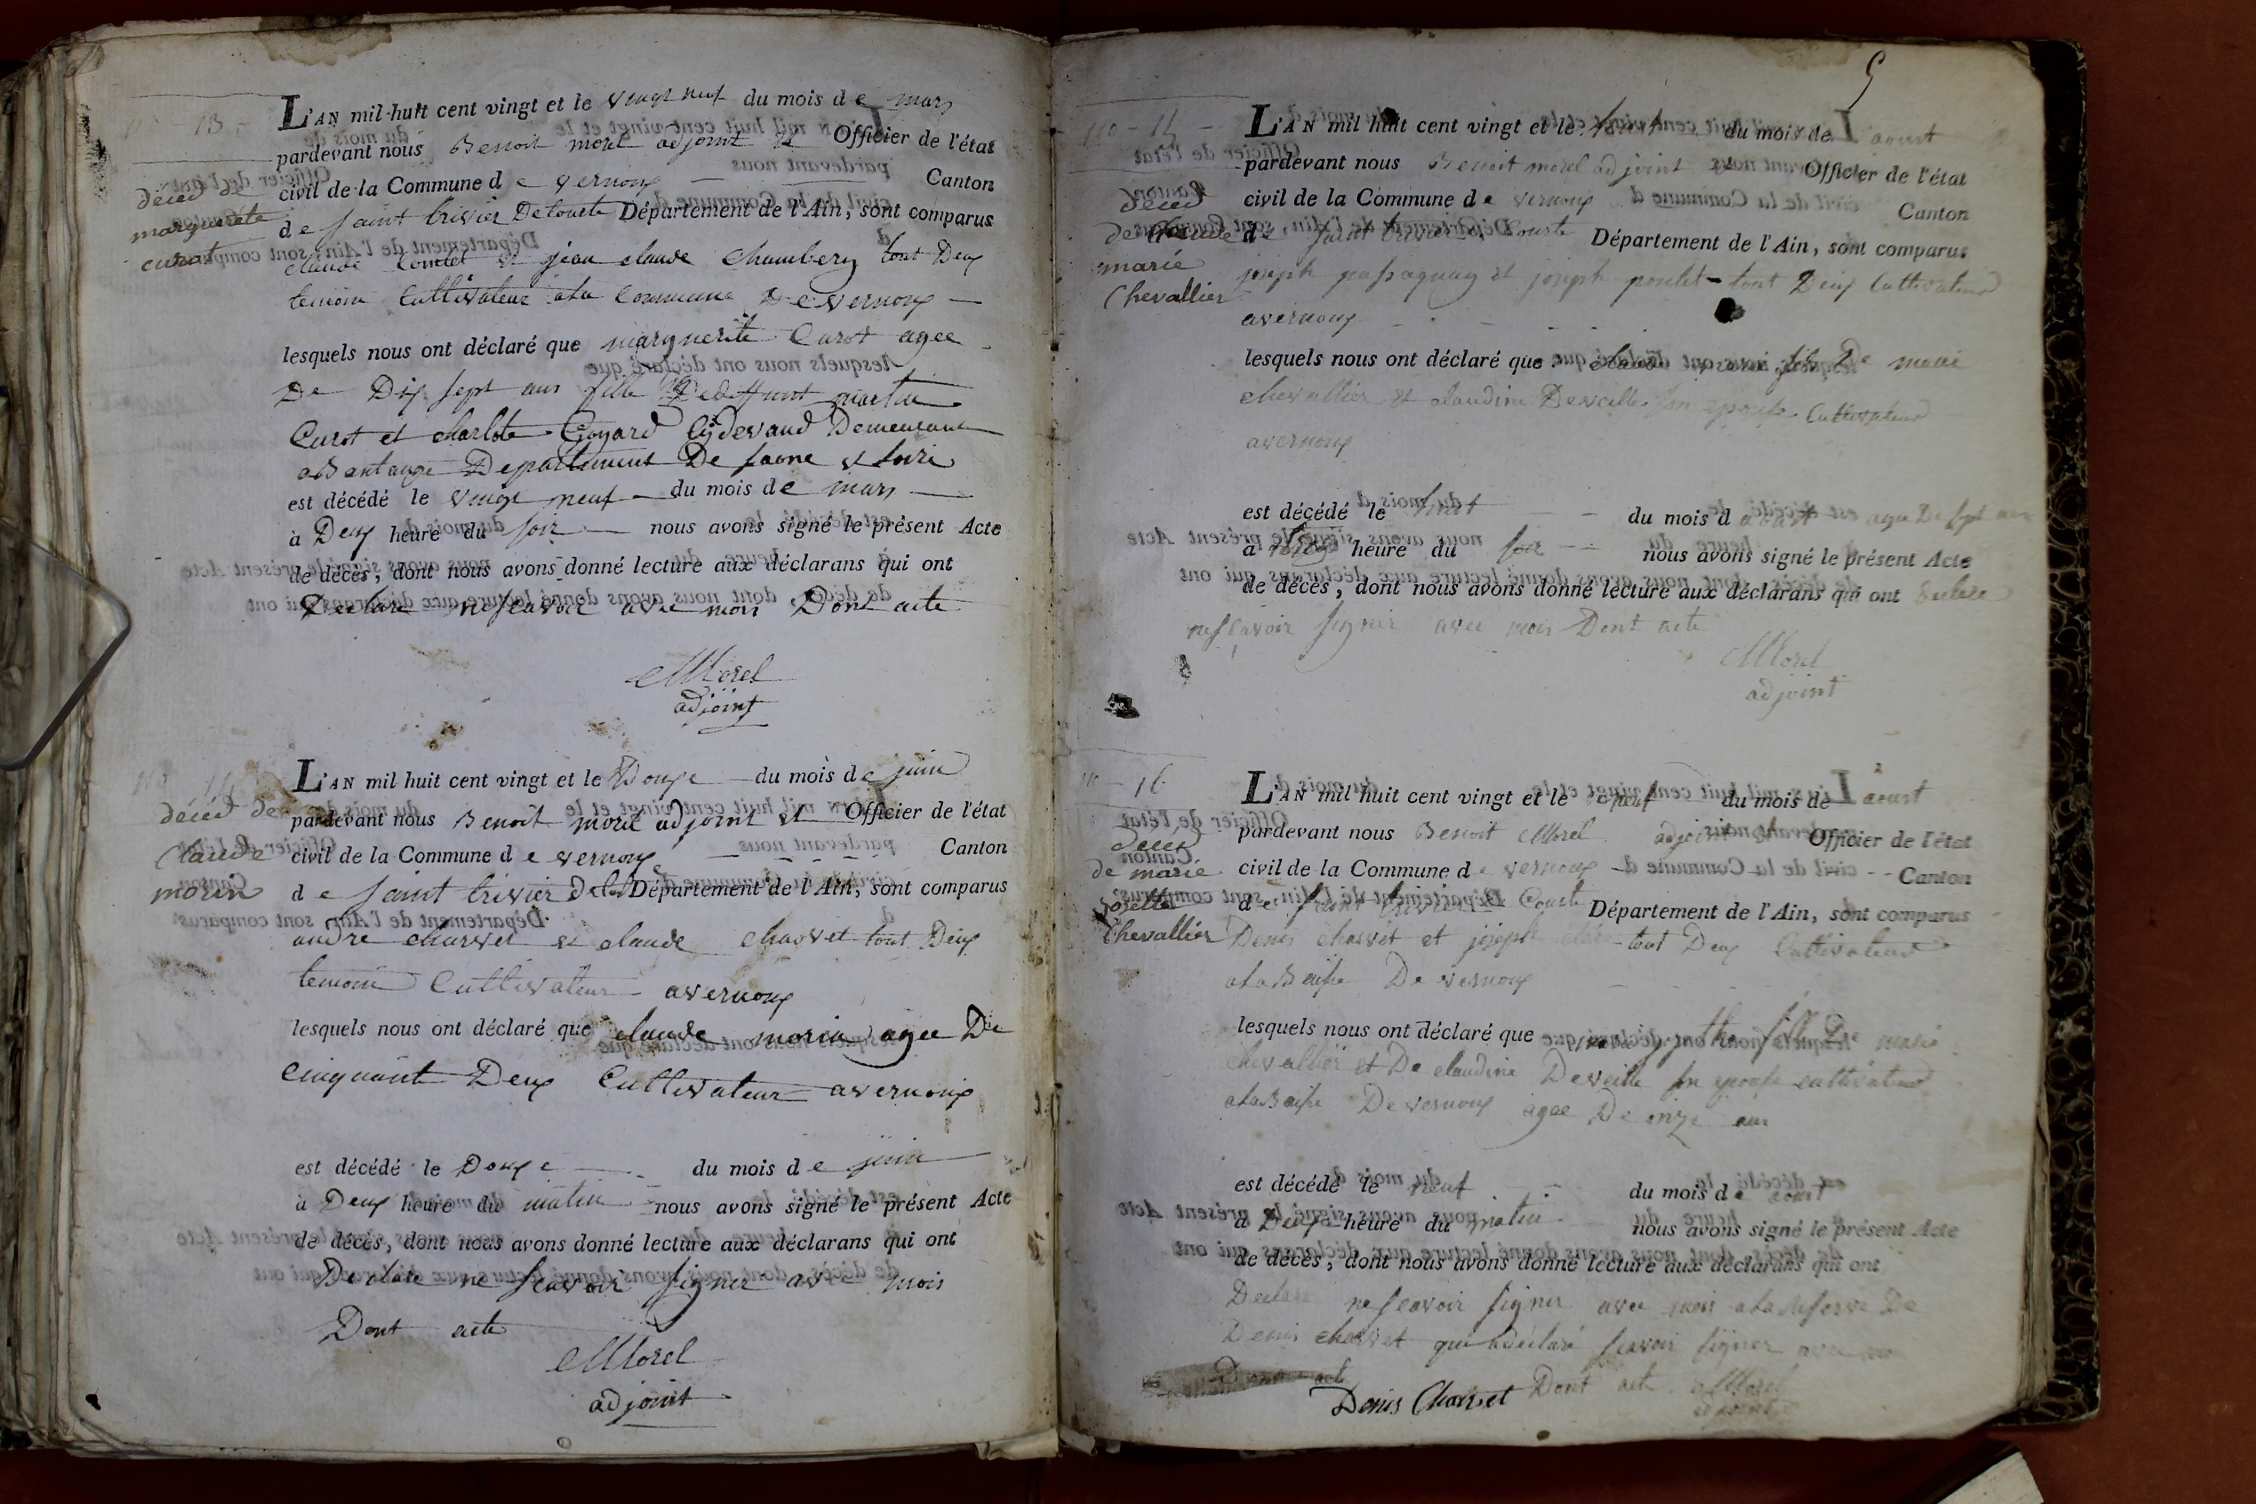 N° 13
déced de
marguerite
curot
L'AN mil huit cent vingt et le vingt neuf du mois de mars
pardevant nous Benoit morel adjoint et Officier de l'état
civil de la Commune de vernoux Canton
de saint trivier Decourte Département de l'Ain, sont comparus
claude et jean claude Chambery tout Deux
temoin Cultivateur ala Commune De vernoux
lesquels nous ont déclaré que marguerite Curot agee
De Dix sept ans fille Dedeffunt martin
Curot et charlote Goyard Demeurant
aBantange Departement De saone et loire
est décédé le vingt neuf du mois de mars
à Deux heure du soir nous avons signé le présent Acte
de décès, dont nous avons donné lecture aux déclarans qui ont
Declare nescavoir avec mois Dont acte
Morel
adjoint
N° 14
déced de
Claude
morin
L'AN mil huit cent vingt et le Douze du mois de juin
pardevant nous Benoit morel adjoint et Officier de l'état
civil de la Commune de vernoux Canton
de saint trivier Département de l'Ain, sont comparus
andre charvet et claude charvet tout Deux
temoin Cultivateur avernoux
lesquels nous ont déclaré que claude morin agee De
Cinquante Deux Cultivateur avernoux
est décédé le Douze du mois de juin
à Deux heure du matin nous avons signé le présent Acte
de décès, dont nous avons donné lecture aux déclarans qui ont
Declare ne scavoir signer avec mois
Dont acte
Morel
adjoint
5
N° 15
déced
de claude
marie
Chevallier
L'AN mil huit cent vingt et le huit du mois de aoust
pardevant nous Benoit morel adjoint et Officier de l'état
civil de la Commune de vernoux Canton
de saint trivier Courte Département de l'Ain, sont comparus
joseph passaquay et joseph poulet tout Deux Cultivateur
avernoux
lesquels nous ont déclaré que claude fils De marie
chevallier et claudine Deveille son epouse Cultivateur
avernoux
est décédé le huit du mois d aoust age De sept ans
à heure du soir nous avons signé le présent Acte
de décès, dont nous avons donné lecture aux déclarans qui ont Declare
nescavoir signer avec mois Dont acte
Morel
adjoint
N° 16
déced
de marie
josette
Chevallier
L'AN mil huit cent vingt et le neuf du mois de aoust
pardevant nous Benoit Morel adjoint Officier de l'état
civil de la Commune de vernoux Canton
de saint trivier Courte Département de l'Ain, sont comparus
Denis charvet et joseph tout Deux Cultivateur
ala Baisse De vernoux
lesquels nous ont déclaré que marie fille De marie
chevallier et De claudine Deveille son epouse cultivateur
ala Baisse De vernoux agee De onze ans
est décédé le neuf du mois de aoust
à Deux heure du matin nous avons signé le présent Acte
de décès, dont nous avons donné lecture aux déclarans qui ont
Declare nescavoir signer avec mois ala Reserve De
Denis charvet qui adéclaré scavoir signer avec
Dont acte Morel
Denis Charvet adjoint